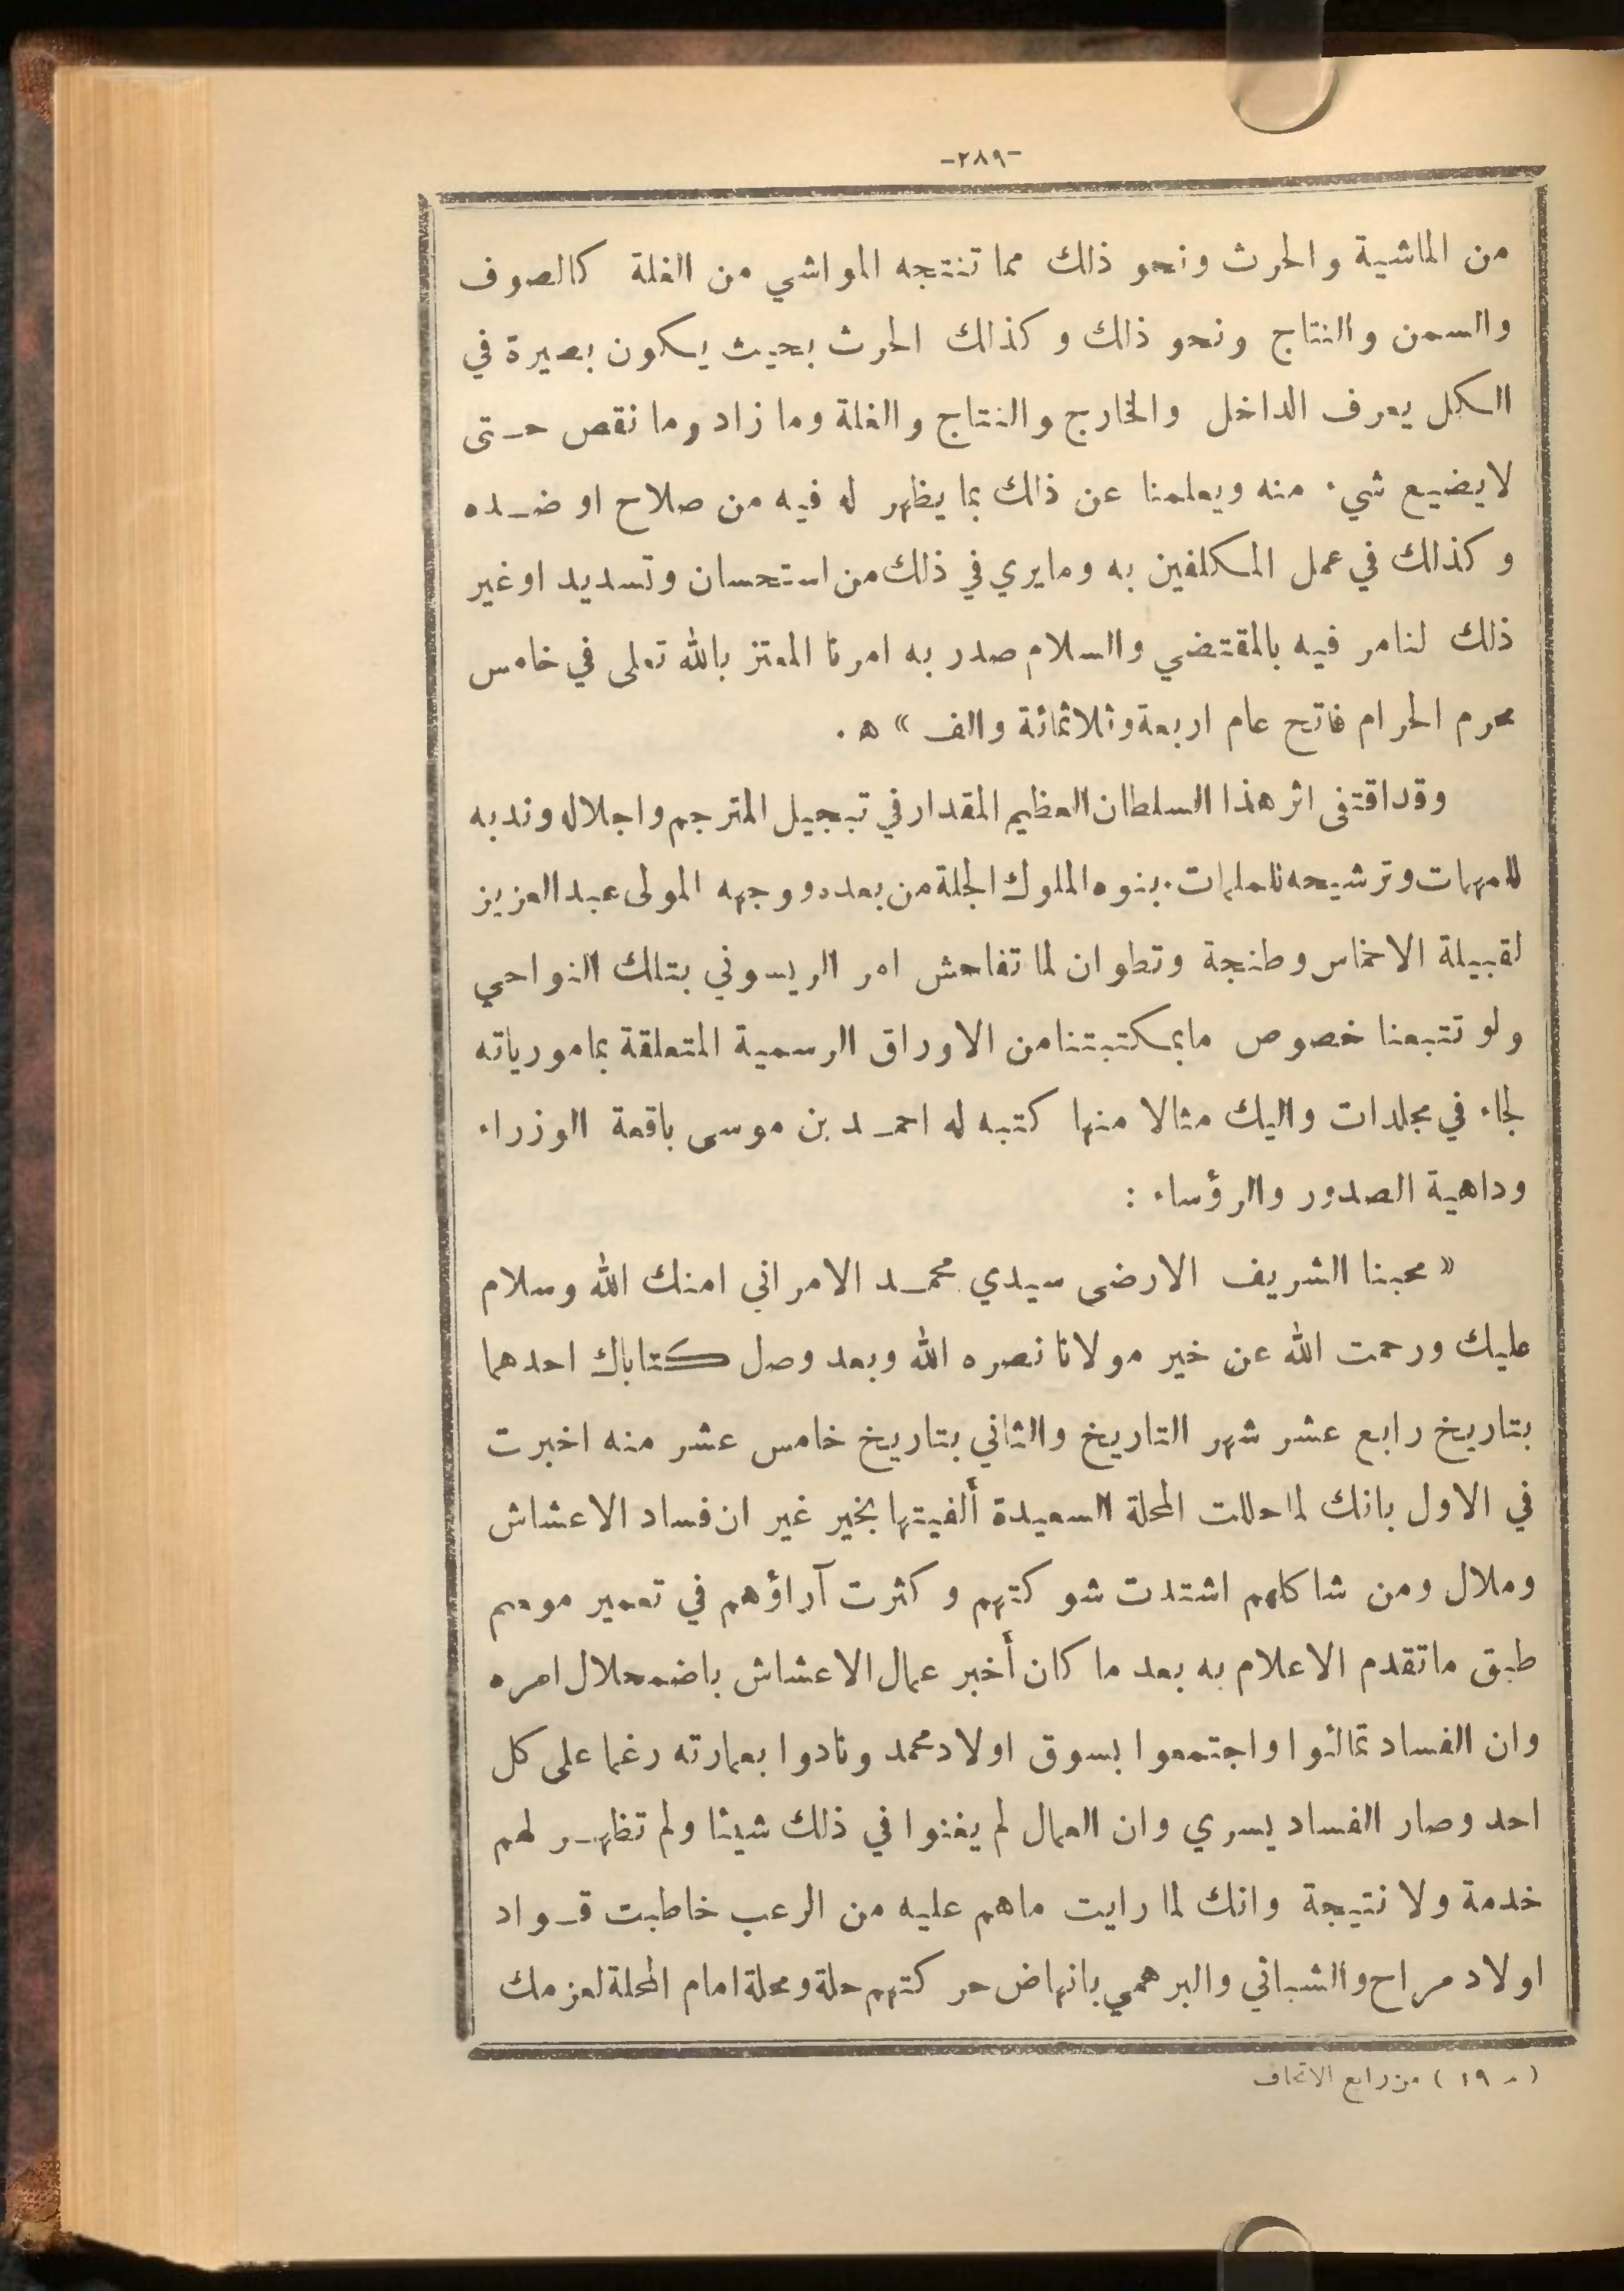 -٢٨٩-
من الماشية والحرث ونحو ذلك مما تنتجه المواشي من الغلة كالصوف
والسمن والنتاج ونحو ذلك وكذلك الحرث بحيث يكون بصيرة في
الكل يعرف الداخل والخارج والنتاج والغلة وما زاد وما نقص حتى
لايضيع شيء منه ويعلمنا عن ذلك بما يظهر له فيه من صلاح او ضده
وكذلك في عمل المكلفين به ومايري في ذلك من استحسان وتسديد اوغير
ذلك لنامر فيه بالمقتضي والسلام صدر به امرنا المعتز بالله تعلى في خامس
محرم الحرام فاتح عام اربعة وثلاثمائة والف » ه .
وقد اقتفى اثر هذا السلطان العظيم المقدار في تبجيل المترجم واجلاله وندبه
للمهمات وترشيحه للملمات. بنوه الملوك الجلة من بعده ووجهه المولى عبد العزيز
لقبيلة الاخماس وطنجة وتطوان لما تفاحش امر الريسوني بتلك النواحي
ولو تتبعنا خصوص مابمكتبتنا من الاوراق الرسمية المتعلقة بمامورياته
لجاء في مجلدات واليك مثالا منها كتبه له احمد بن موسى باقعة الوزراء
وداهية الصدور والرؤساء :
« محبنا الشريف الارضى سيدي محمد الامراني امنك الله وسلام
عليك ورحمت الله عن خير مولانا نصره الله وبعد وصل كتاباك احدهما
بتاريخ رابع عشر شهر التاريخ والثاني بتاريخ خامس عشر منه اخبرت
في الاول بانك لما حللت المحلة السعيدة ألفيتها بخير غير ان فساد الاعشاش
وملال ومن شاكلهم اشتدت شوكتهم وكثرت آراؤهم في تعمير موسم
طبق ماتقدم الاعلام به بعد ما كان أخبر عمال الاعشاش باضمحلال امره
وان الفساد تمالئوا واجتمعوا بسوق اولاد محمد ونادوا بعمارته رغما على كل
احد وصار الفساد يسري وان العمال لم يغنوا في ذلك شيئا ولم تظهر لهم
خدمة ولا نتيجة وانك لما رايت ماهم عليه من الرعب خاطبت قواد
اولاد مراح والشباني والبرهمي بانهاض حركتهم حلة ومحلة امام المحلة لعزمك
( م ١٩ ) من رابع الاتحاف